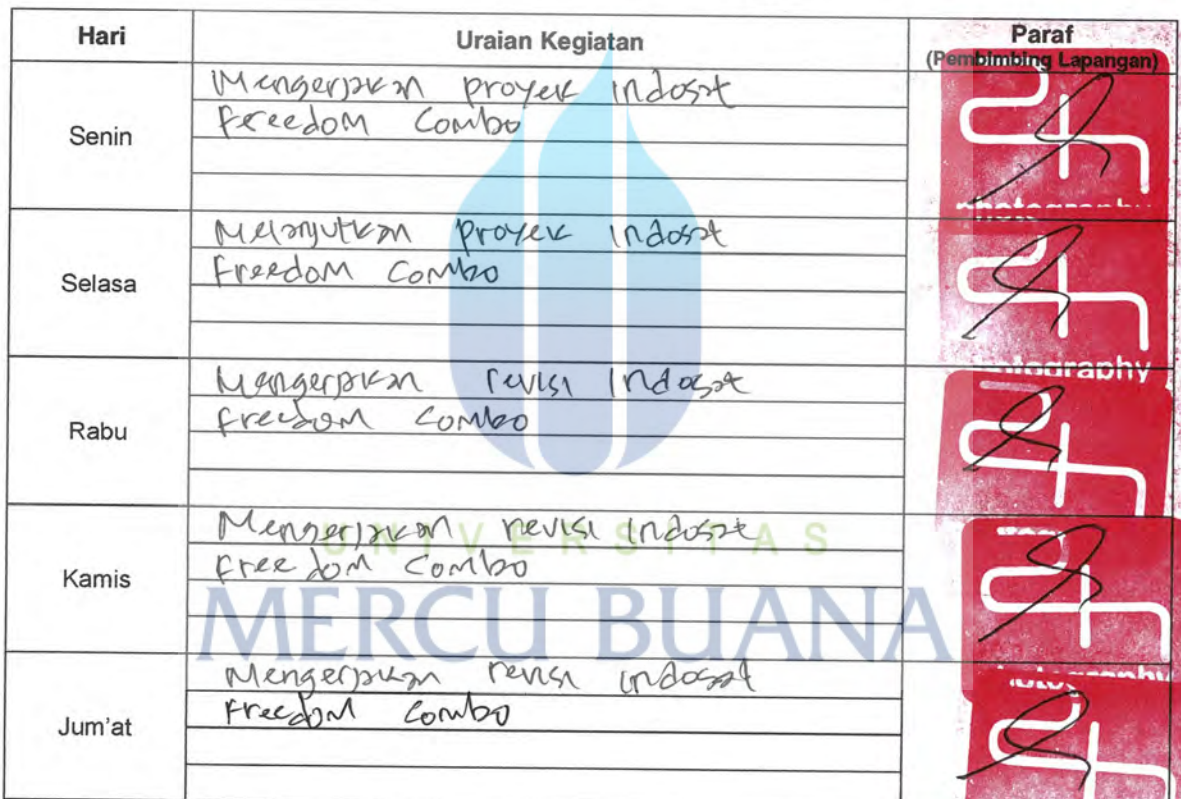 Hari Uraian Kegiatan Paraf
(Pembimbing Lapangan)
Senin
Mengerjakan proyek indosat
Freedom Combo
photography
Selasa
Melanjutkan proyek indosat
Freedom Combo
photography
Rabu
Mengerjakan revisi Indosat
Freedom Combo
Kamis
Mengerjakan revisi indosat
Freedom Combo
UNIVERSITAS
MERCU BUANA
photography
Jum'at
Mengerjakan revisi indosat
Freedom Combo